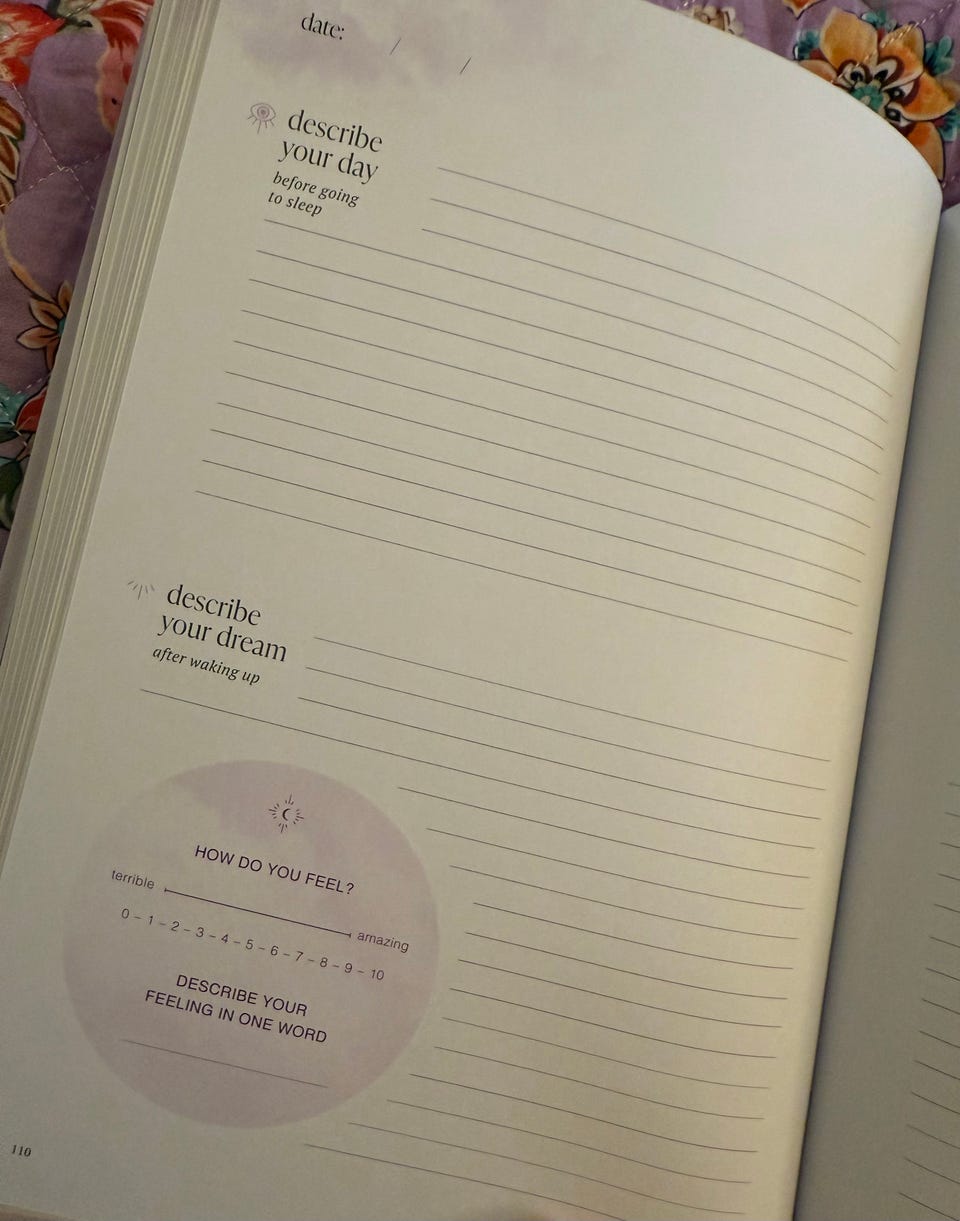 date: / /
describe
your day
before going
to sleep
describe
your dream
after waking up
HOW DO YOU FEEL?
terrible amazing
0 – 1 – 2 – 3 – 4 – 5 – 6 – 7 – 8 – 9 – 10
DESCRIBE YOUR
FEELING IN ONE WORD
110